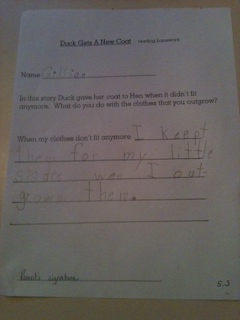 Duck Gets A New Coat reading homework
Name Gillian
In this story Duck gave her coat to Hen when it didn't fit
anymore. What do you do with the clothes that you outgrow?
When my clothes don't fit anymore I keept
them for my little
I out-
grown them.
Parent's signature
5.3